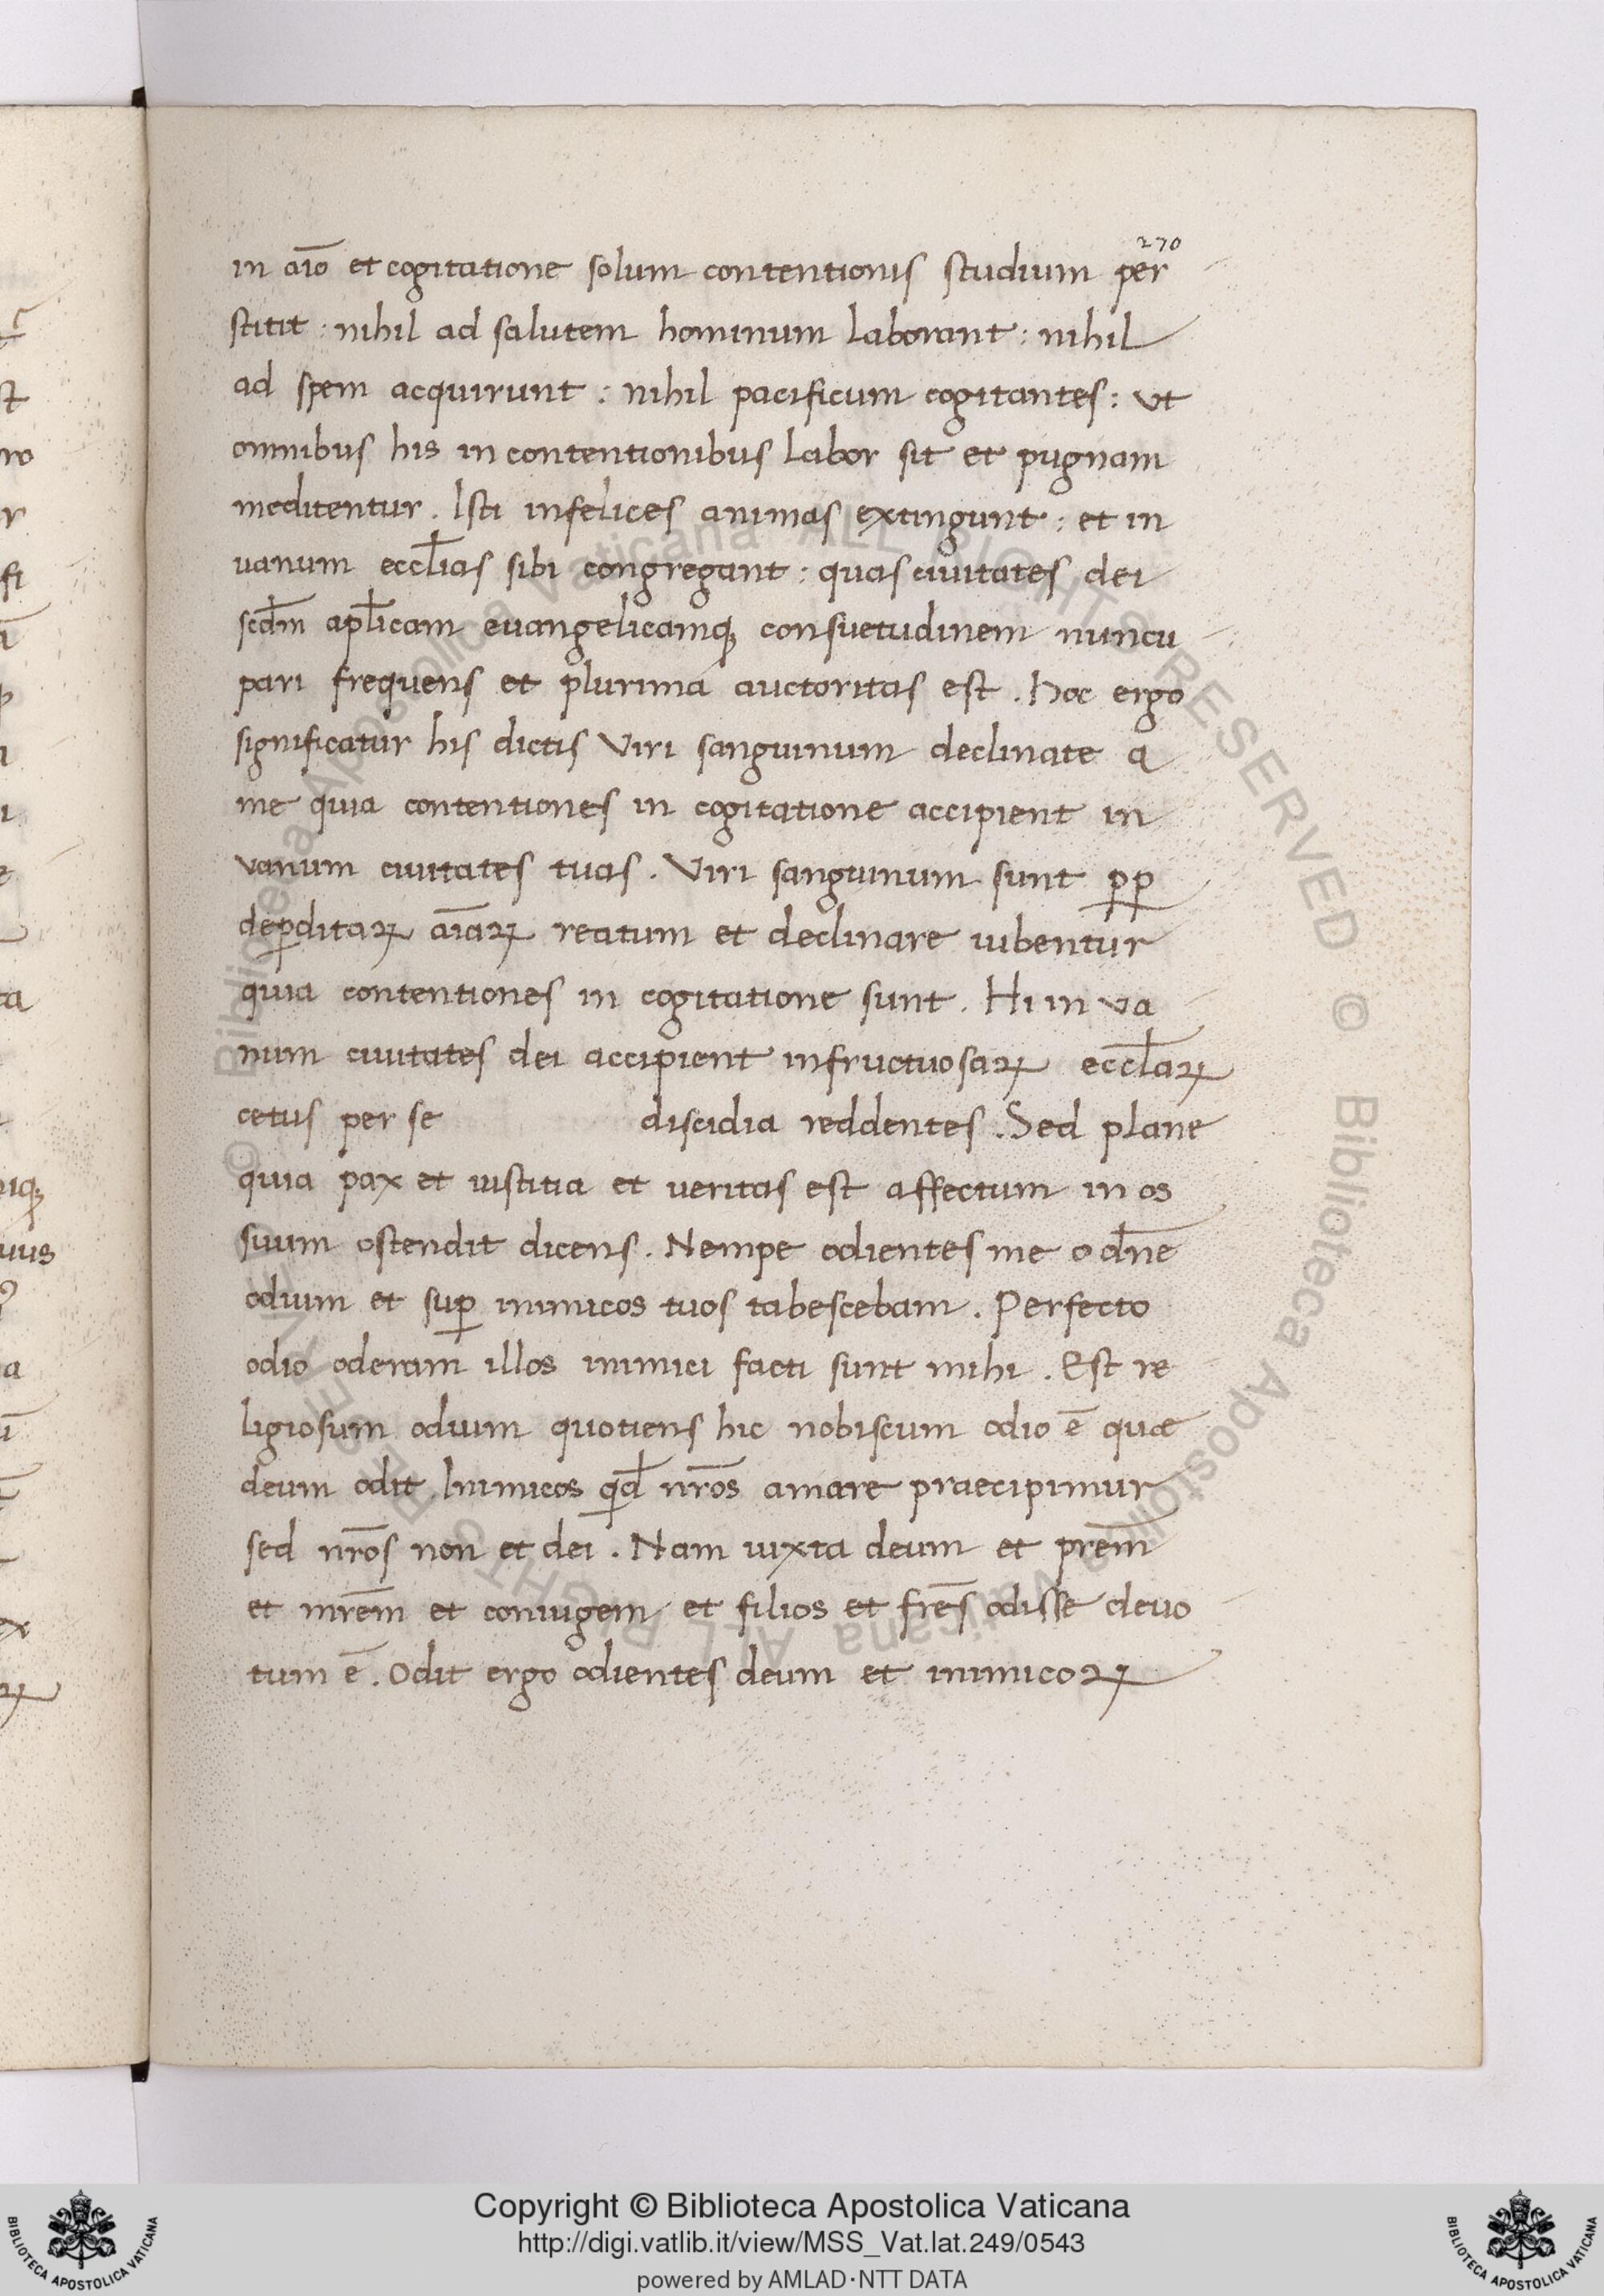 270
in aīo et cogitatione solum contentionis studium per
stitit : nihil ad salutem hominum laborant : nihil
ad spem acquirunt : nihil pacificum cogitantes : ut
omnibus his in contentionibus labor sit et pugnam
meditentur . Isti infelices animas extingunt : et in
uanum eccl̄ias sibi congregant : quas ciuitates dei
scd̄m apl̄icam euangelicamq; consuetudinem nuncu
pari frequens et plurima auctoritas est . Hoc ergo
significatur his dictis Viri sanguinum declinate a
me quia contentiones in cogitatione accipient in
vanum ciuitates tuas . Viri sanguinum sunt ꝑp
deꝑditaꝝ aīaꝝ reatum et declinare iubentur
quia contentiones in cogitatione sunt . Hi in va
num ciuitates dei accipient infructuosaꝝ eccl̄aꝝ
cetus per se discidia reddentes . Sed plane
quia pax et iustitia et ueritas est affectum in os
suum ostendit dicens . Nempe odientes me o dn̄e
odium et suꝑ inimicos tuos tabescebam . Perfecto
odio oderam illos inimici facti sunt mihi . Est re
ligiosum odium quotiens hic nobiscum odio ē quae
deum odit Inimicos qd̄ nr̄os amare praecipimur
sed nr̄os non et dei . Nam iuxta deum et pr̄em
et mr̄em et coniugem et filios et fr̄es odisse deuo
tum ē . Odit ergo odientes deum et inimicoꝝ
© Biblioteca Apostolica Vaticana ALL RIGHTS RESERVED
© Biblioteca Apostolica Vaticana ALL RIGHTS RESERVED
Copyright © Biblioteca Apostolica Vaticana
http://digi.vatlib.it/view/MSS_Vat.lat.249/0543
powered by AMLAD·NTT DATA
BIBLIOTECA APOSTOLICA VATICANA
BIBLIOTECA APOSTOLICA VATICANA